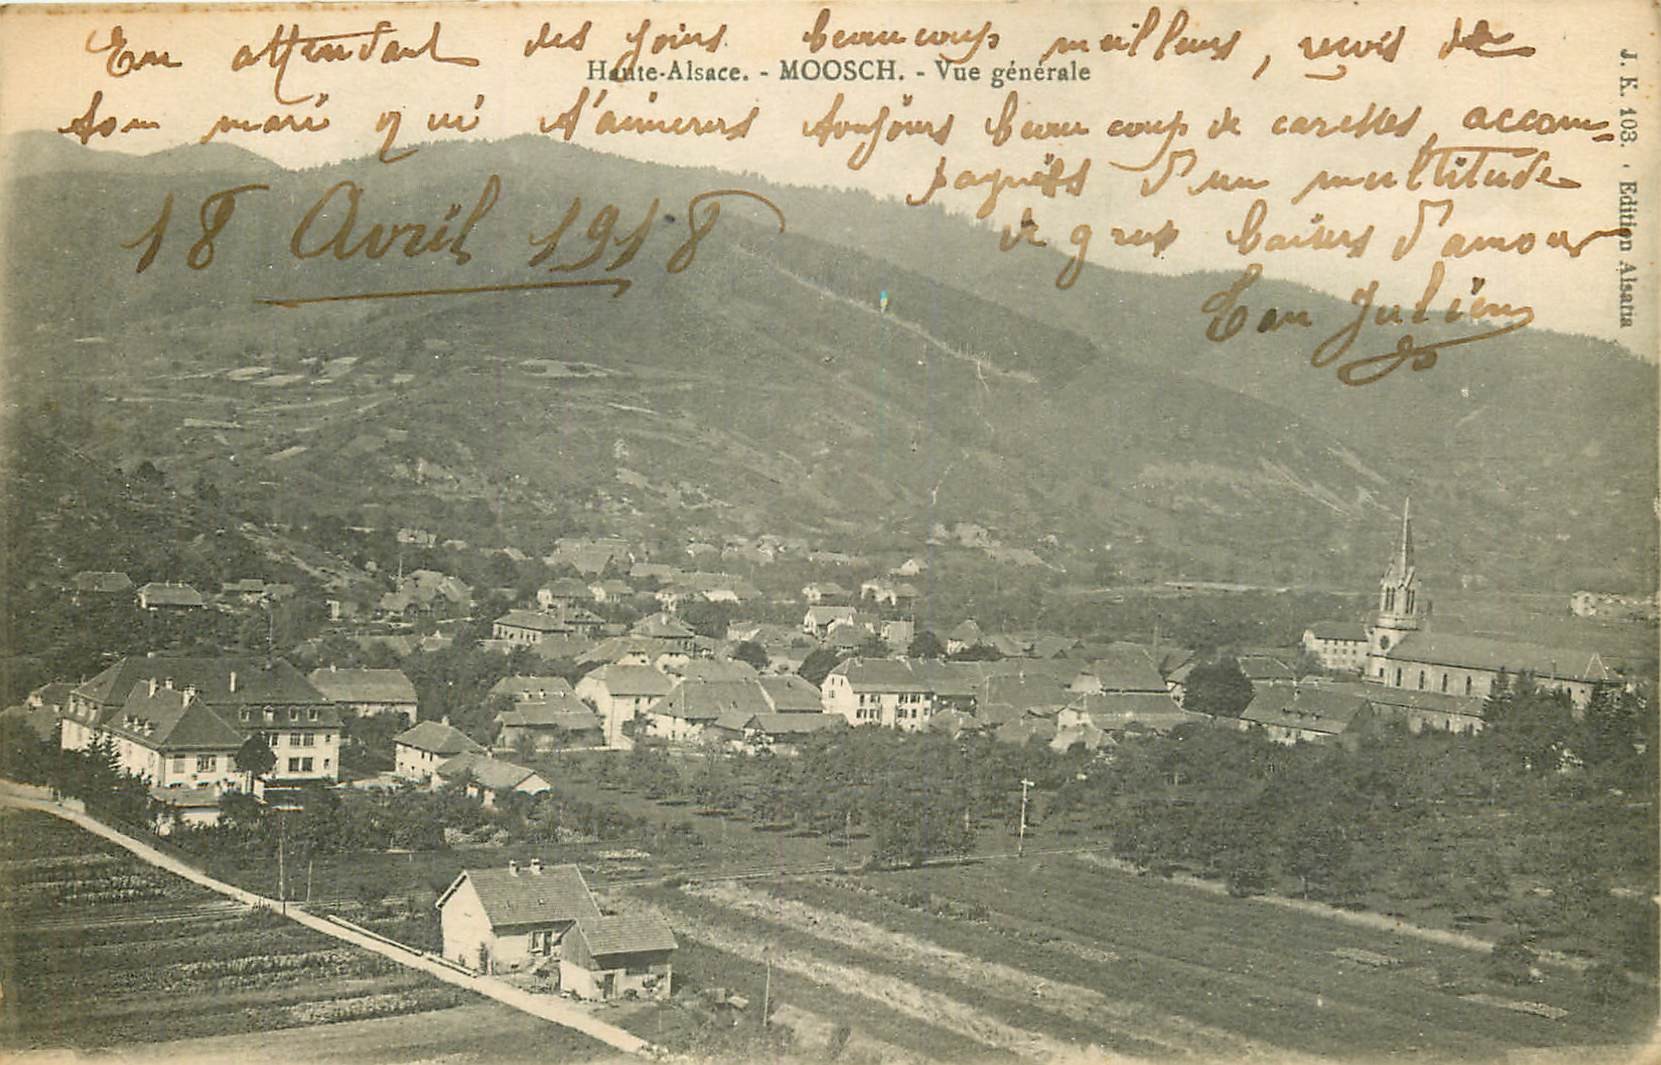 En attendant des jours beaucoup meilleurs, reçois de
Haute-Alsace. - MOOSCH. - Vue générale
ton mari qui t'aimeras toujours beaucoup de caresses, accom-
pagnées d'un multitude
de gros baisers d'amour
18 Avril 1918
Ton Julien
J. K. 103. - Edition Alsatia